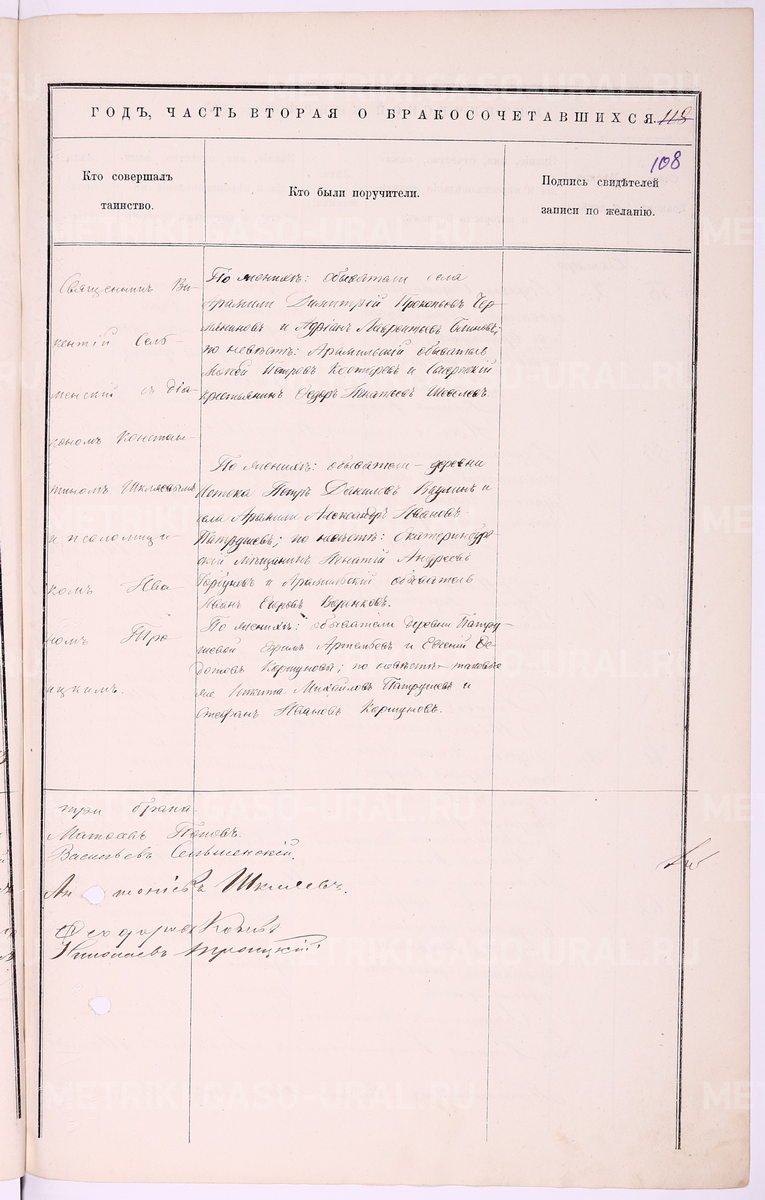 ГОДЪ, ЧАСТЬ ВТОРАЯ О БРАКОСОЧЕТАВШИХСЯ. 118
108
Кто совершалъ
таинство.
Кто были поручители.
Подпись свидѣтелей
записи по желанію.
Священникъ Ви-
кентій Сель-
менскій съ діа-
кономъ Констан-
тиномъ Шкляевымъ
и псаломщи-
комъ Ива
номъ Тро
ицкимъ.
По женихѣ: обыватели села
Арамили Димитрій Прокопьевъ Чер-
и Адріанъ Лаврентьевъ
по невѣстѣ: Арамильскій обыватель
Петровъ Костеревъ и
крестьянинъ Ѳедоръ Игнатьевъ
По женихѣ: обыватели – деревни
Истока Петръ Даниловъ Ваулинъ и
села Арамили Александръ Ивановъ
Патрушевъ; по невѣстѣ: Екатеринбург-
скій мѣщанинъ Игнатій Андреевъ
Горбуновъ и Арамильскій обыватель
Иванъ
По женихѣ: обыватели деревни Патру-
шевой Ефимъ Артемьевъ и Евгеній Ѳе-
дотовъ Коршуновы; по невѣстѣ – таковые
же Никита Михайловъ Патрушевъ и
Стефанъ Ивановъ Коршуновъ.
три брака
Поповъ.
Васильевъ Сельменскій.
Шкляевъ.
Николаевъ Троицкій